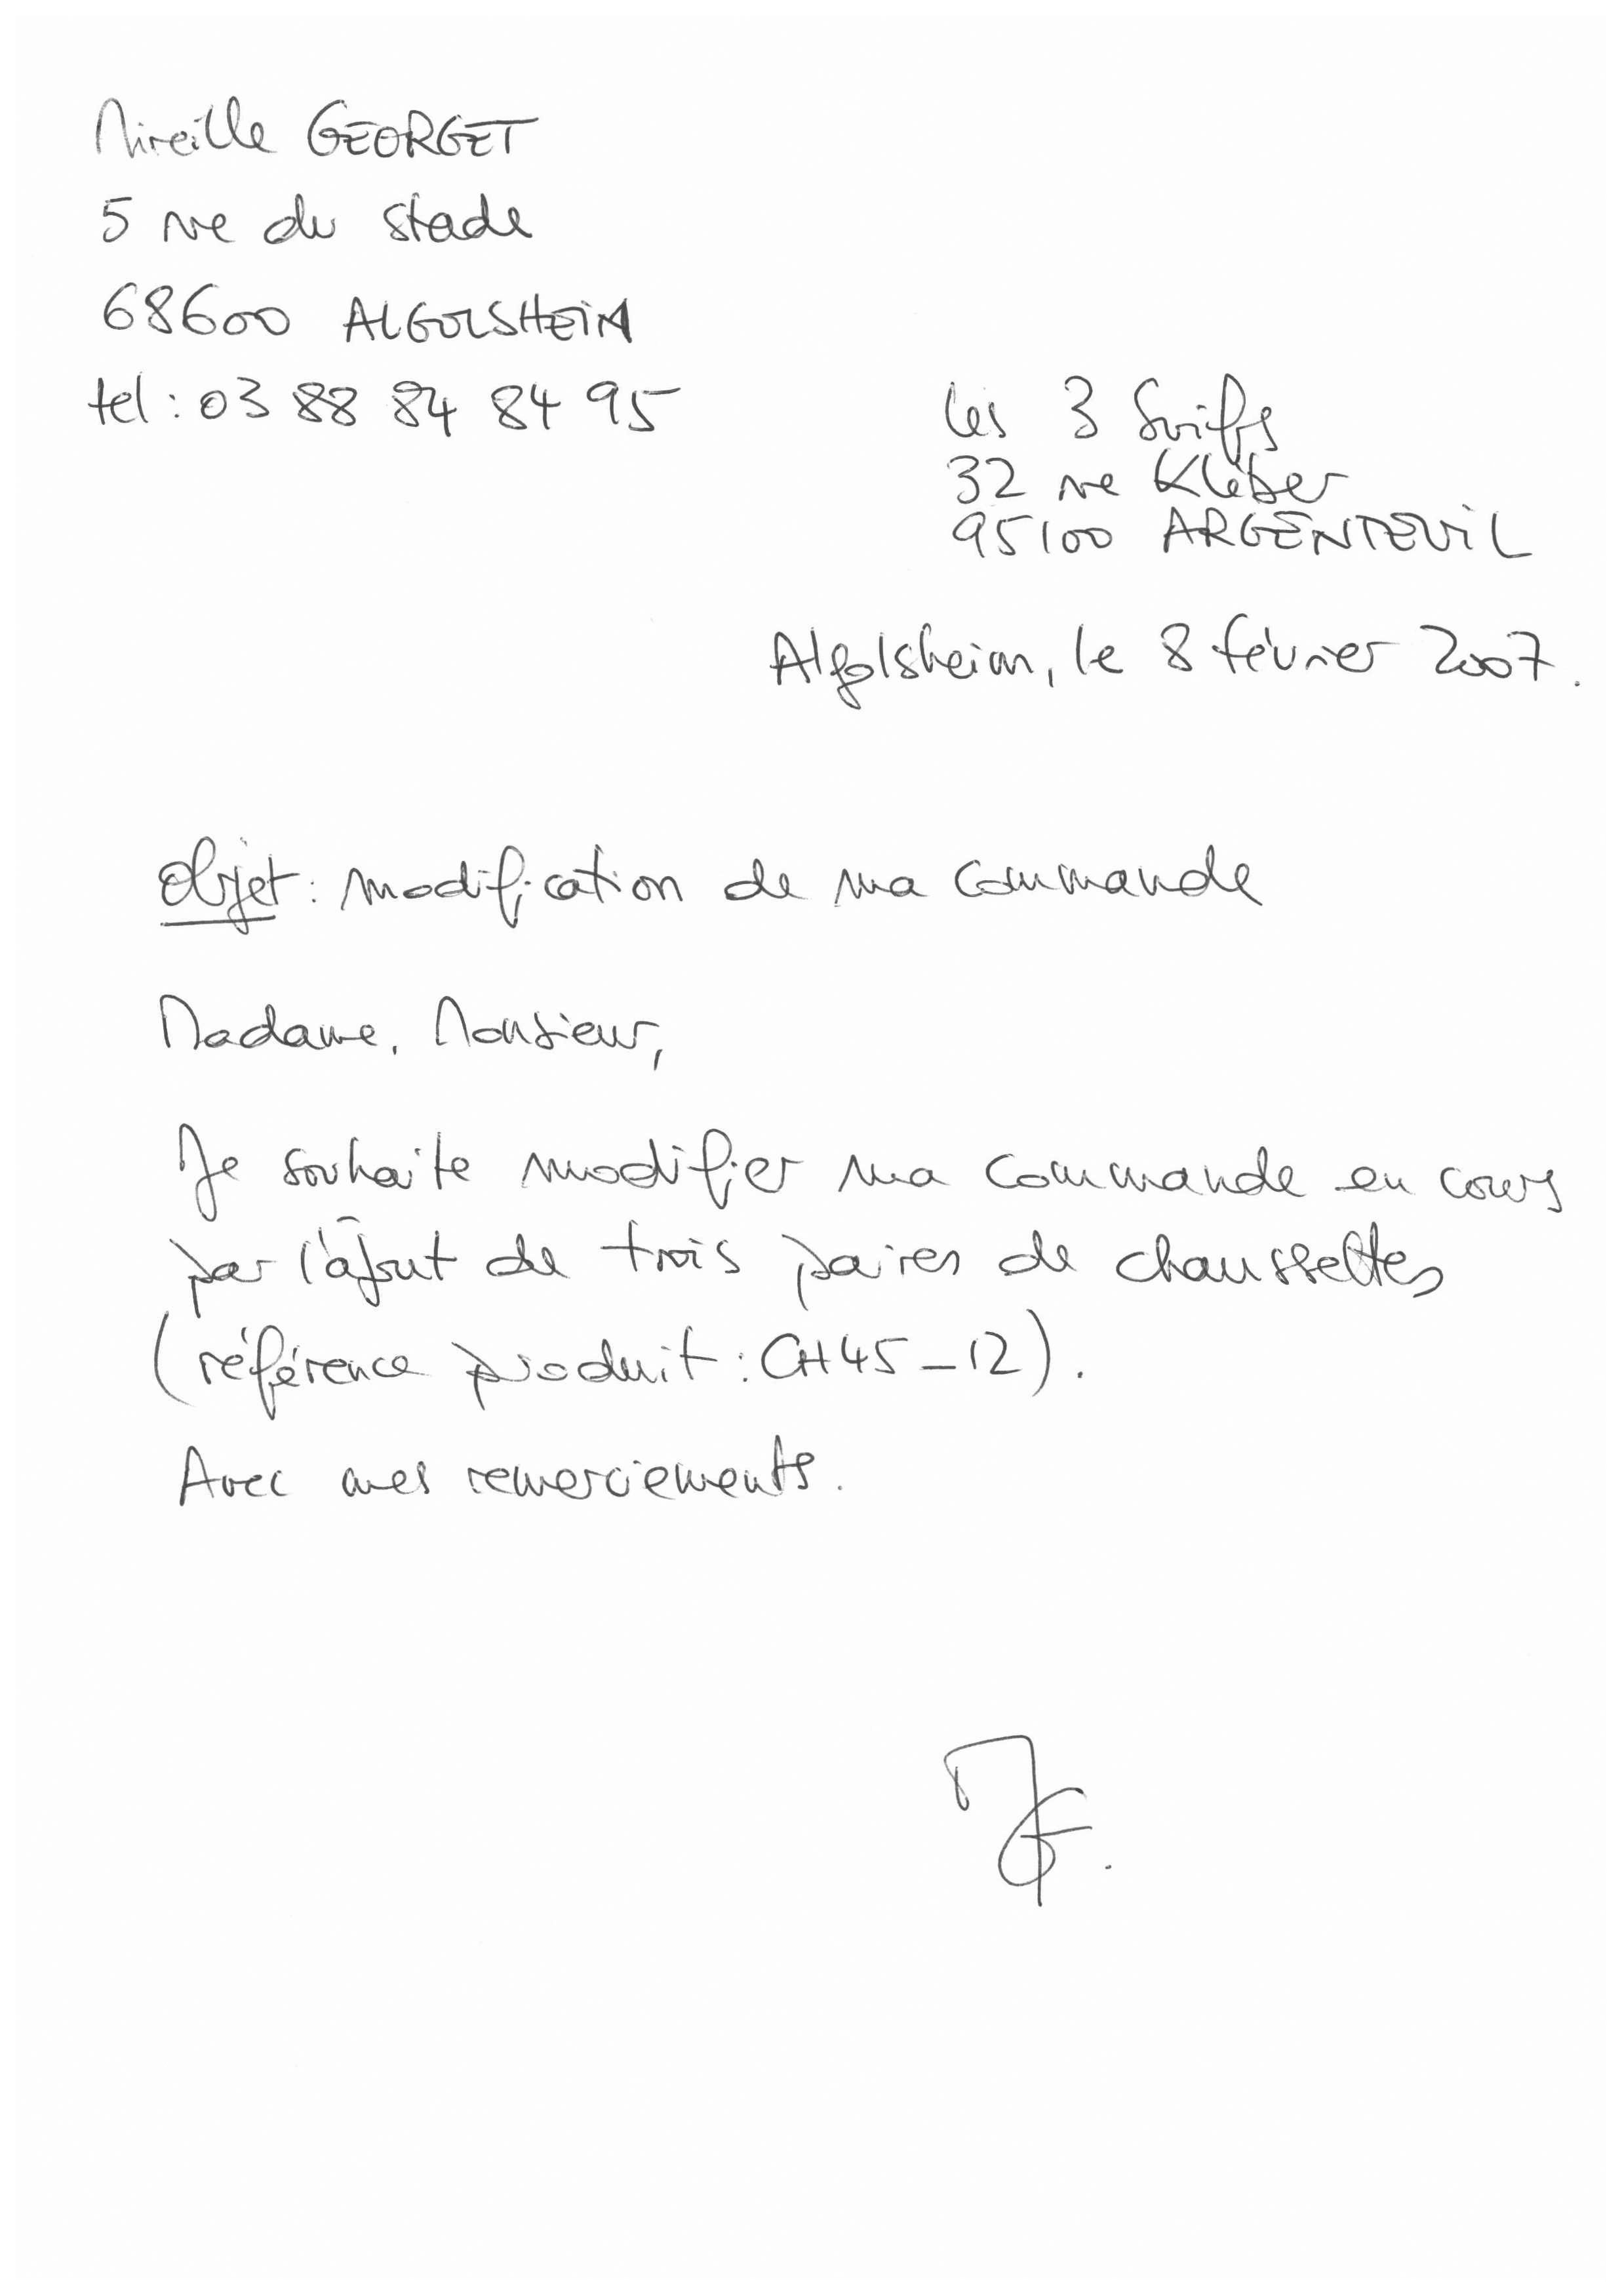 Mireille GEORGET
5 rue du stade
68600 ALGOLSHEIM
tel : 03 88 84 84 95
Les 3 Suiffs
32 rue Kléber
95100 ARGENTEUIL
Algolsheim, le 8 février 2007.
Objet : modification de ma commande
Madame, Monsieur,
Je souhaite modifier ma commande en cours
par l'ajout de trois paires de chaussettes
(référence produit : CH45-12).
Avec mes remerciements.
MG.